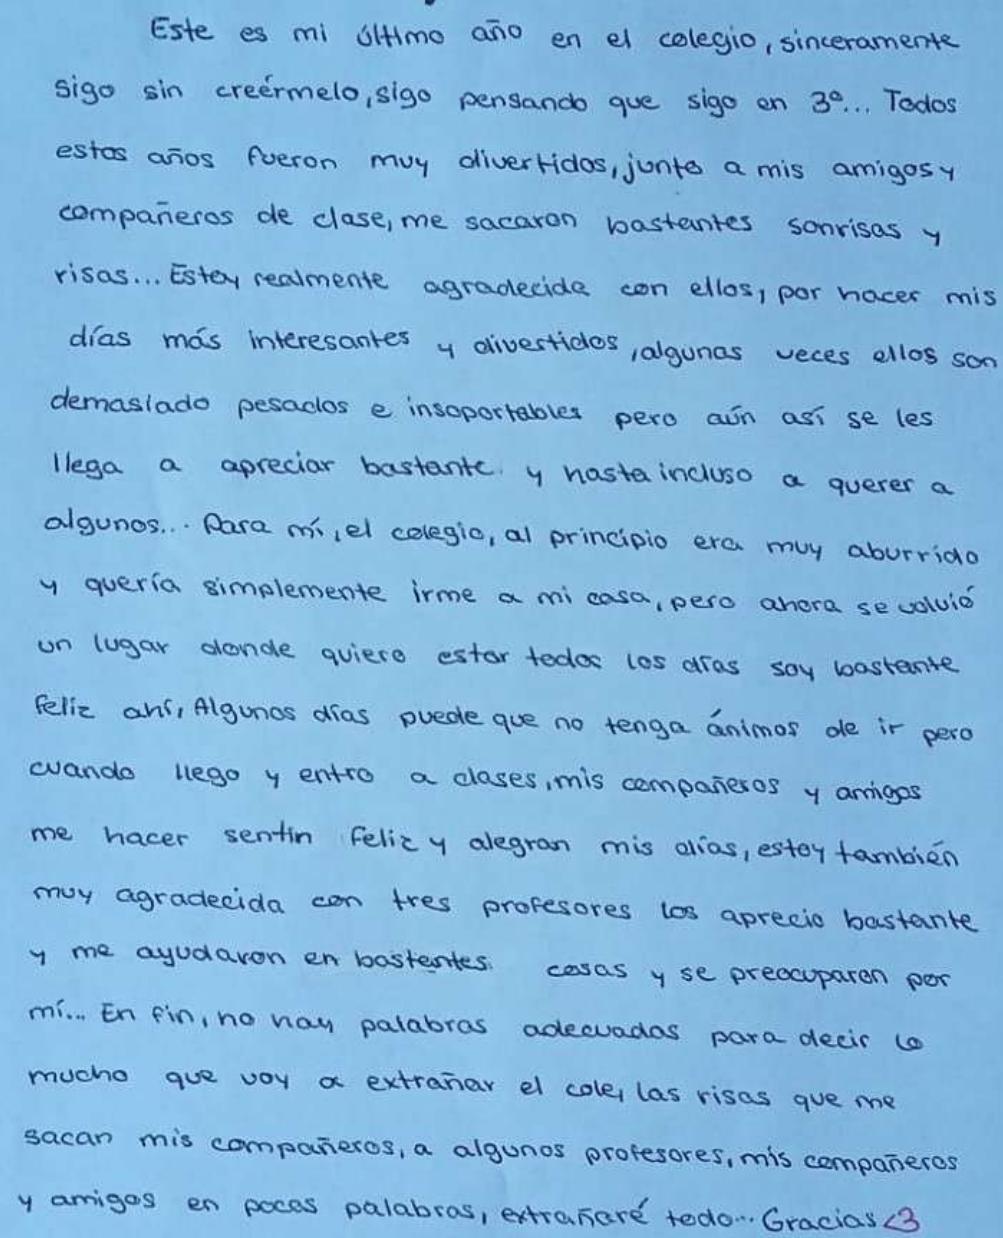 Este es mi último año en el colegio, sinceramente
sigo sin creérmelo, sigo pensando que sigo en 3º... Todos
estos años fueron muy divertidos, junto a mis amigos y
compañeros de clase, me sacaron bastantes sonrisas y
risas... Estoy realmente agradecida con ellos, por hacer mis
días más interesantes y divertidos, algunas veces ellos son
demasiado pesados e insoportables pero aún así se les
llega a apreciar bastante. y hasta incluso a querer a
algunos... Para mí, el colegio, al principio era muy aburrido
y quería simplemente irme a mi casa, pero ahora se volvió
un lugar donde quiero estar todos los días soy bastante
feliz ahí, Algunos días puede que no tenga ánimos de ir pero
cuando llego y entro a clases, mis compañeros y amigos
me hacer sentin feliz y alegran mis días, estoy también
muy agradecida con tres profesores los aprecio bastante
y me ayudaron en bastentes. cosas y se preocuparon por
mí... En fin, no hay palabras adecuadas para decir lo
mucho que voy a extrañar el cole, las risas que me
sacan mis compañeros, a algunos profesores, mis compañeros
y amigos en pocas palabras, extrañaré todo... Gracias <3